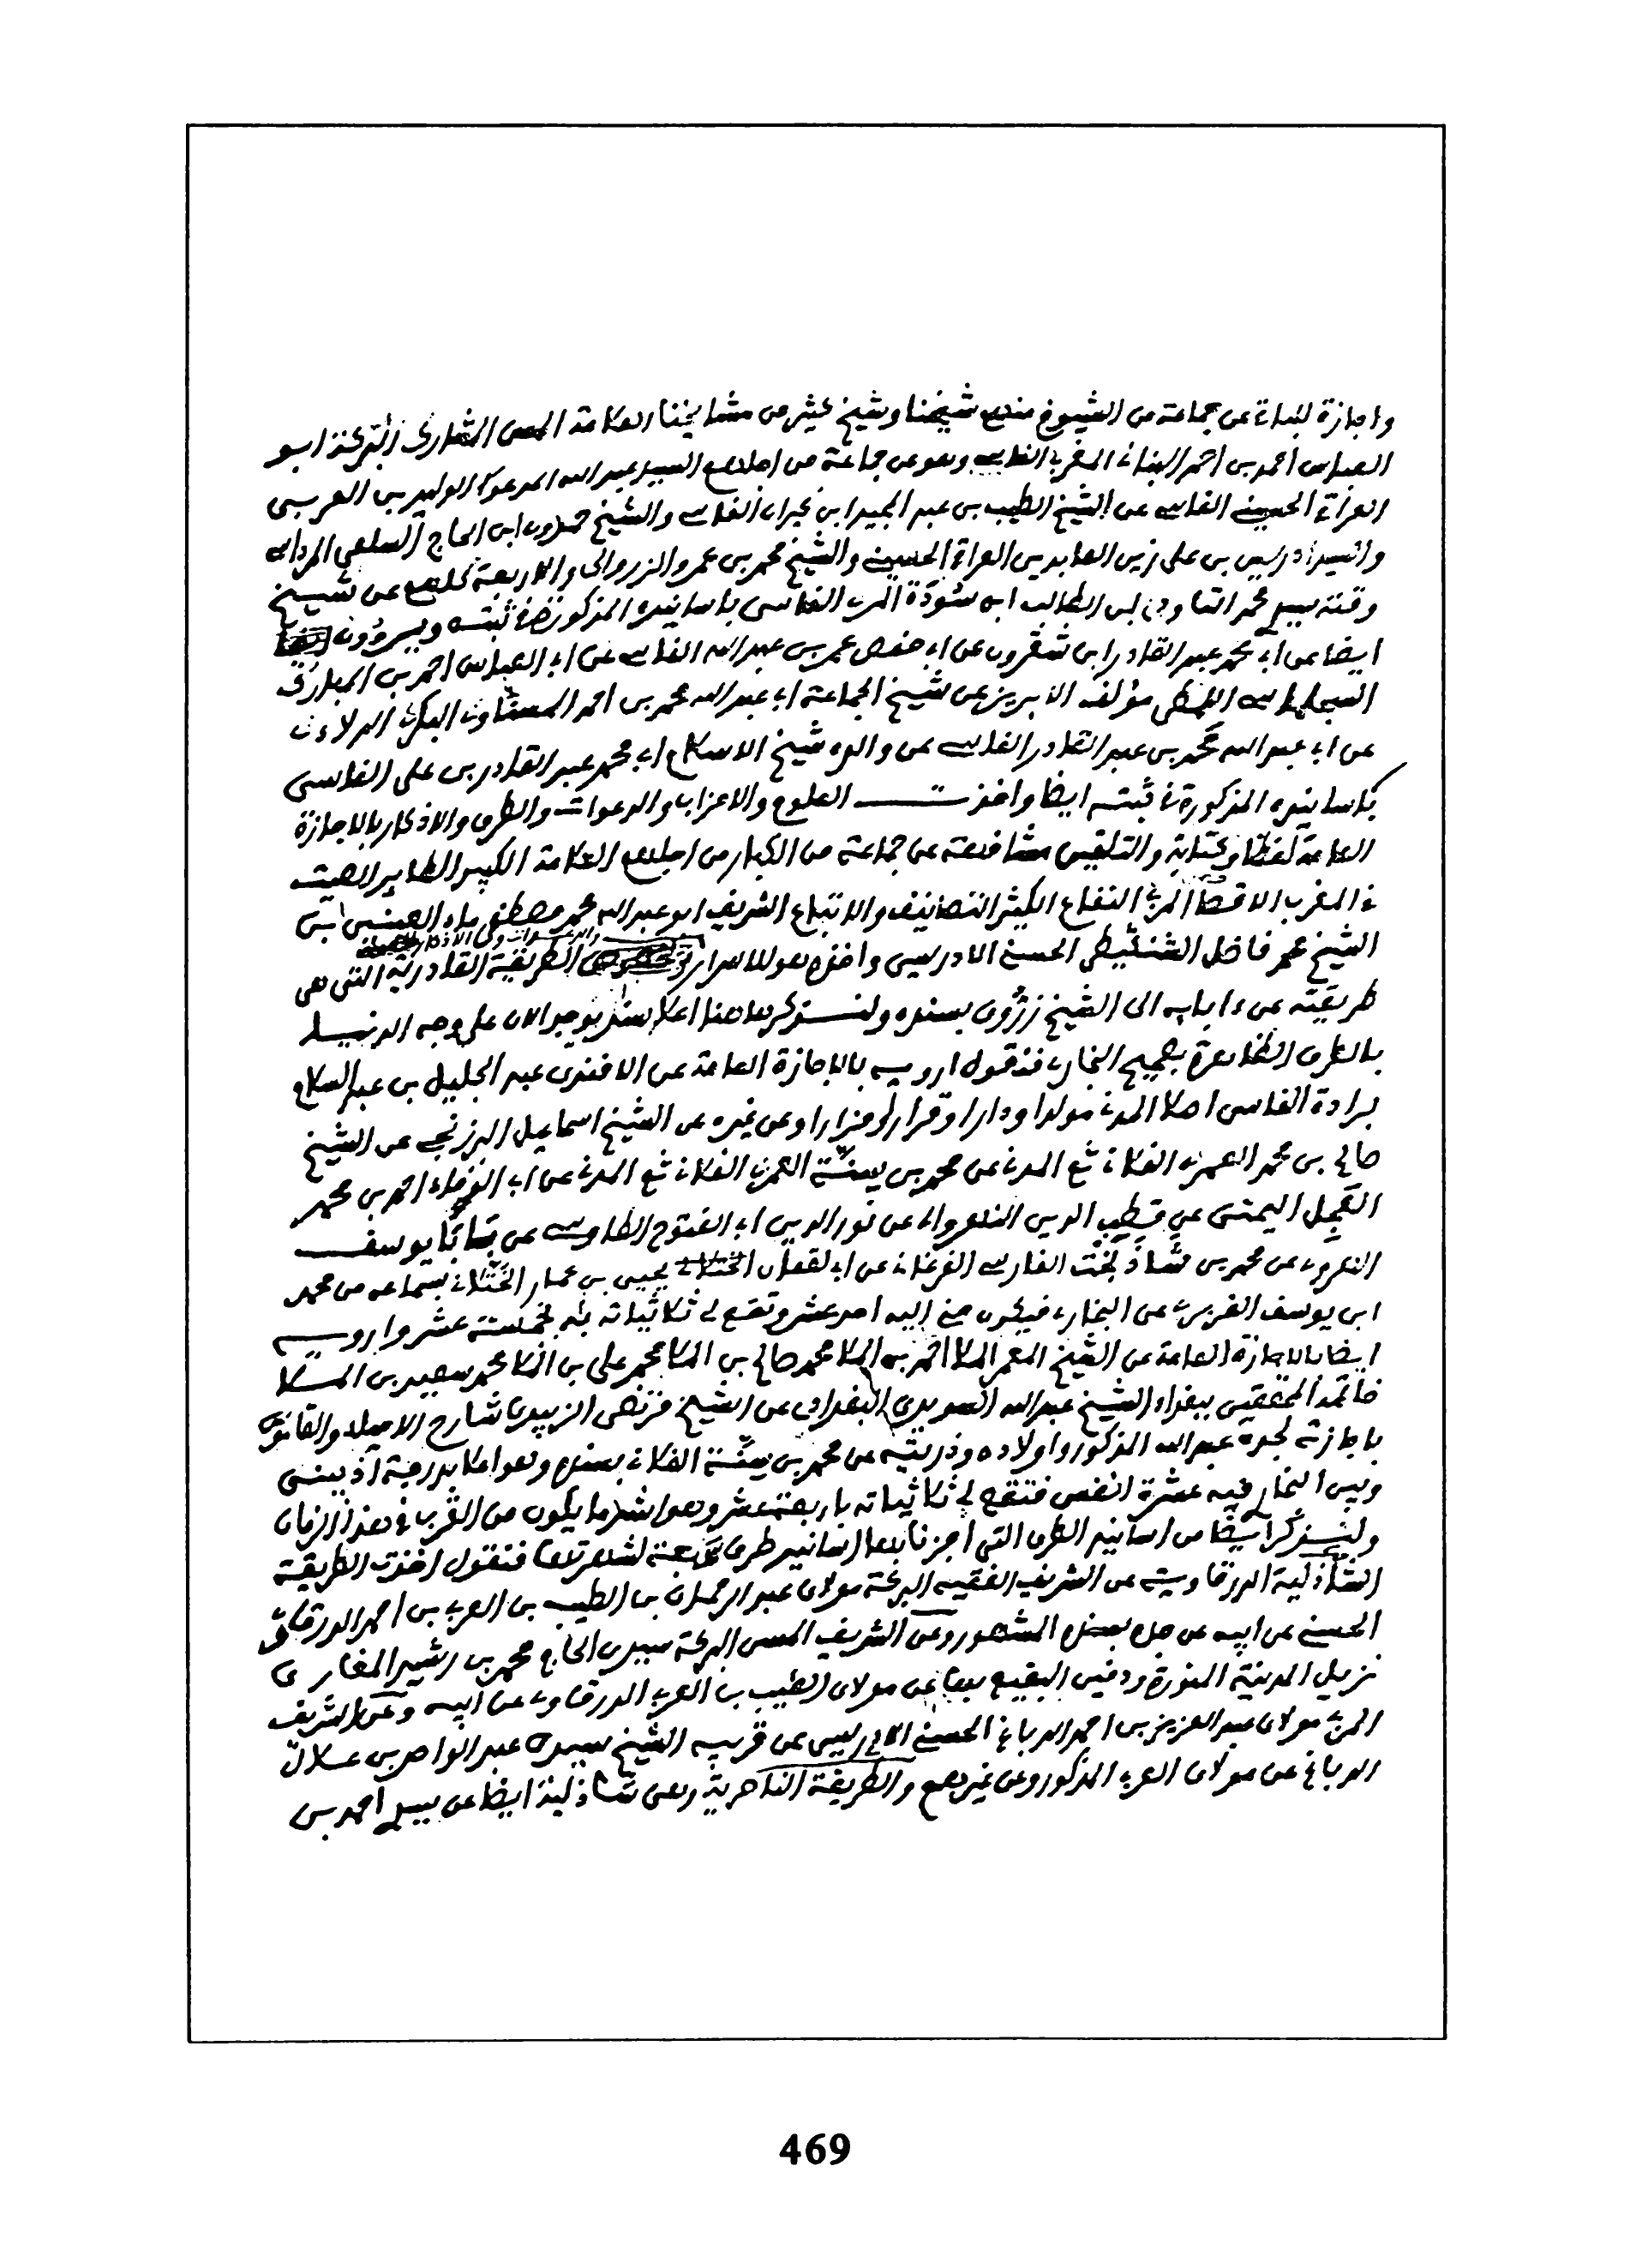 واجازة لثباته عن جماعة من الشيوخ منهم شيخنا وشيخ كثير من مشايخنا العلامة المسن المشارك البركة ابو
العباس احمد بن احمد البناني المغربي الفاسي وهو عن جماعة من اجلهم السيد عبد الله المدعو الوليد بن العربي
العراقي الحسيني الفاسي عن الشيخ الطيب بن عبد المجيد ابن كيران الفاسي والشيخ حمدون ابن الحاج السلمي المرداسي
والسيد ادريس بن علي زين العابدين العراقي الحسيني والشيخ محمد بن عمرو الزروالي والاربعة كلهم عن شيخ
وقته سيدي محمد التاودي بن الطالب ابن سودة المري الفاسي باسانيده المذكورة في ثبته ويروون
ايضا عن ابي محمد عبد القادر ابن شقرون عن ابي حفص عمر بن عبد الله الفاسي عن ابي العباس احمد بن المبارك
السجلماسي اللمطي مؤلف الابريز عن شيخ الجماعة ابي عبد الله محمد بن احمد المسناوي البكري الدلاءي
عن ابي عبد الله محمد بن عبد القادر الفاسي عن والده شيخ الاسلام ابي محمد عبد القادر بن علي الفاسي
باسانيده المذكورة في ثبته ايضا واخذت العلوم والاحزاب والدعوات والطرق والاذكار بالاجازة
العامة لفظا وكتابة والتلقين مشافهة عن جماعة من الكبار من اجلهم العلامة الكبير الطاير الصيت
في المغرب الاقصا المربي النفاع الكثير التصانيف والاتباع الشريف ابو عبد الله محمد مصطفى ماء العينين ابن
الشيخ محمد فاضل الشنڭيطي الحسني الادريسي واخذه هو للاسرار والدعوات وفي الاذكار الطريقة القادرية التي هي
طريقته عن ءابايه الى الشيخ زروق بسنده ولنستذكرها هنا اعلا سند يوجد الان على وجه الدنيا
بالطرق الظاهرة بصحيح البخاري فنقول ارويه بالاجازة العامة عن الافندي عبد الجليل بن عبد السلام
برادة الفاسي اصلا المدني مولدا ودارا وقرارا ومزارا وعن غيره عن الشيخ اسماعيل البرزنجي عن الشيخ
صالح بن محمد العمري الفلاني ثم المدني عن محمد بن سنة العمري الفلاني ثم المدني عن ابي الوفاء احمد بن محمد
العجل اليمني عن قطب الدين النهروالي عن نور الدين ابي الفتوح الطاوسي عن بابا يوسف
الهروي عن محمد بن شاذ بخت الفارسي الفرغاني عن ابي لقمان يحيى بن عمار الختلاني بسماعه من محمد
ابن يوسف الفربري عن البخاري فيكون مني اليه احد عشر وتقع لي ثلاثياته بخمسة عشر وارويه
ايضا بالاجازة العامة عن الشيخ المعمر الملا احمد بن الملا محمد صالح بن الملا محمد علي بن الملا محمد سعيد بن الملا
خاتمة المحققين ببغداد الشيخ عبد الله السويدي البغدادي عن الشيخ مرتضى الزبيدي شارح الاحيا والقاموس
باجازته لجده عبد الله المذكور واولاده وذريته عن محمد بن سنة الفلاني بسنده وهو اعلا بدرجة اذ بيني
وبين البخاري فيه عشرة انفس فتقع لي ثلاثياته باربعة عشر وهو اشد ما يكون من القرب في هذا الزمان
ولنذكر ايضا من اسانيد الطرق التي اجزنا بها اسانيد طرق سبعة لشهرتها فنقول اخذت الطريقة
الشاذلية الدرقاوية عن الشريف الفقيه البركة مولاي عبد الرحمان بن الطيب بن العربي بن احمد الدرقاوي
الحسني عن ابيه عن جده بسنده المشهور وعن الشريف المسن البركة سيدي الحاج محمد بن رشيد المغاري
نزيل المدينة المنورة ودفين البقيع بها عن مولاي الطيب بن العربي الدرقاوي عن ابيه وعن الشريف
المربي مولاي عبد العزيز بن احمد الدباغ الحسني الادريسي عن قريبه الشيخ سيدي عبد الواحد بن علال
الدباغ عن مولاي العربي المذكور وعن غيرهم والطريقة الناصرية وهي شاذلية ايضا عن سيدي احمد بن
469